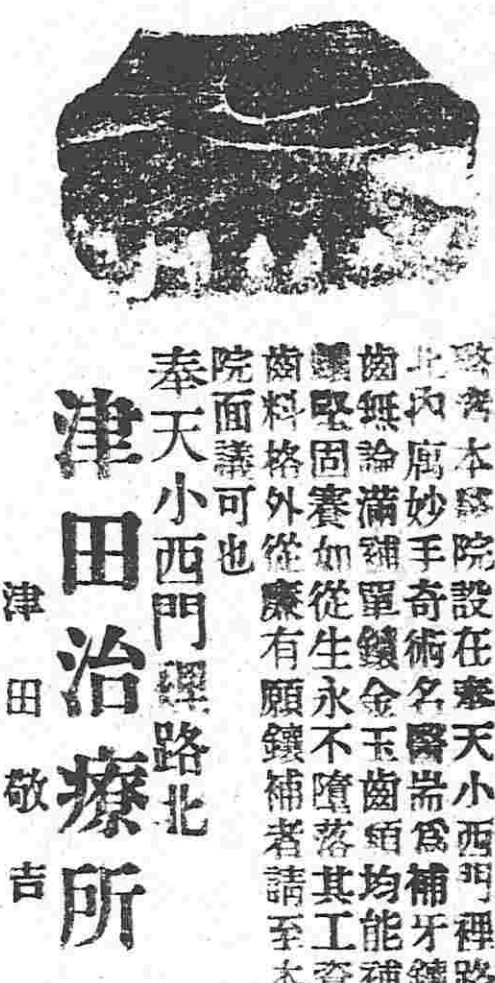 敬啓本醫院設在奉天小西門裡路
北內属妙手奇術名醫耑爲補牙鑲
齒無論滿補單鑲金玉齒頭均能補
鑲堅固賽如從生永不墮落其工資
齒料格外從廉有願鑲補者請至本
院面議可也
奉天小西門裡路北
津田治療所
津田敬吉